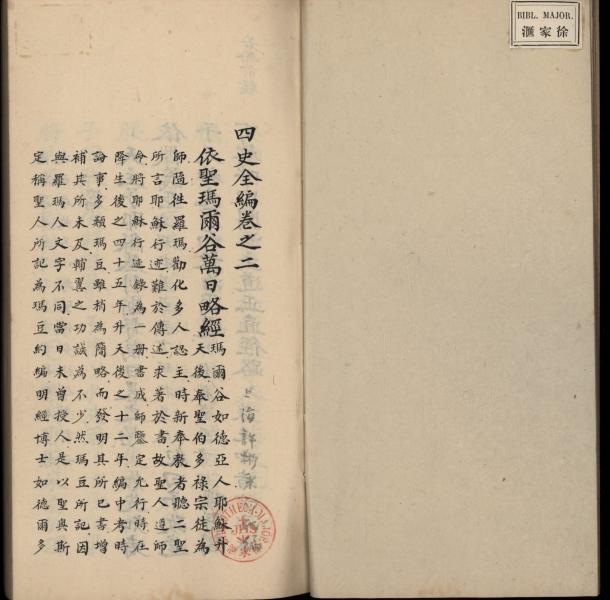 BIBL. MAJOR.
徐家滙
四史全編卷之二
依聖瑪爾谷萬日略經
瑪爾谷如德亞人耶穌升
天後奉聖伯多祿宗徒為
師隨徃羅瑪勸化多人認主時新奉教者聽二聖
所言耶穌行迹難於傳述求著於書故聖人遵師
命將耶穌行迹錄為一册書成師鑒定允行時在
降生後之四十五年升天後之十二年編中考時
論事多類瑪豆雖稍為簡略而發明其所已書增
補其所未及輔翼之功誠為不少然瑪豆所記因
與羅瑪人文字不同當日未曾授人是以聖奥斯
定稱聖人所記為瑪豆約編明經博士如德爾多